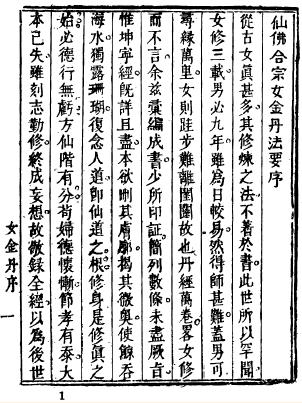 仙佛合宗女金丹法要序
從古女眞甚多其修煉之法不着於書此世所以罕聞
女修三載男必九年雖爲日較易然得師甚難蓋男可
尋緣萬里女則跬步難離閨閫故也丹經萬卷畧女修
而不言余茲彙編成書少所印証簡列數條未盡厥旨
惟坤寧經旣詳且盡本欲刪其膚廓揭其微奧使鯨吞
海水獨露珊瑚復念人道卽仙道之根修身是修眞之
始必德行無虧方仙階有分苟婦德懷慚節孝有忝大
本已失雖刻志勤修終成妄想故敬録全經以爲後世
女金丹序 一
1